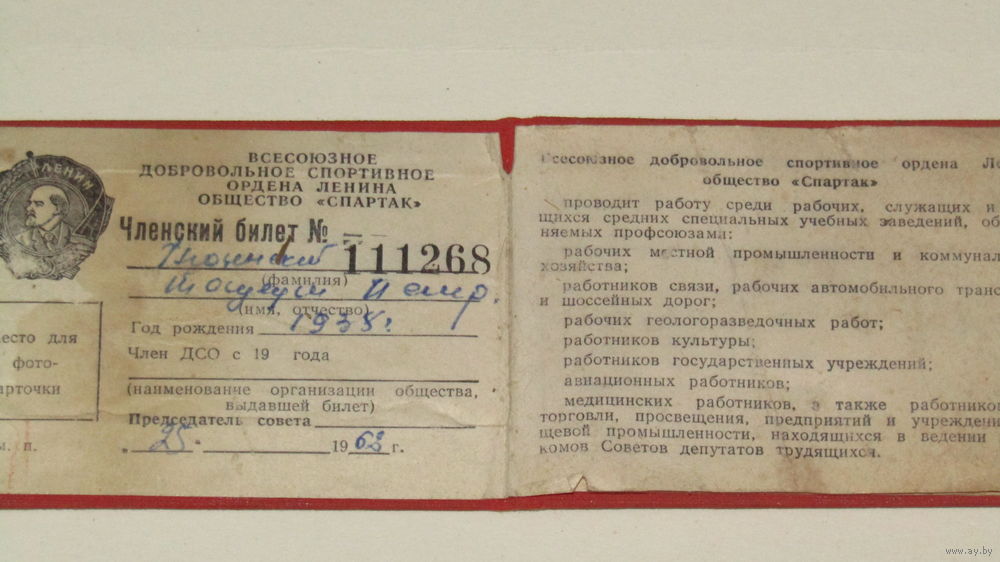 ЛЕНИН
ВСЕСОЮЗНОЕ
ДОБРОВОЛЬНОЕ СПОРТИВНОЕ
ОРДЕНА ЛЕНИНА
ОБЩЕСТВО «СПАРТАК»
Членский билет №
111268
(фамилия)
(имя, отчество)
Год рождения
Член ДСО с 19 года
(наименование организации общества,
выдавшей билет)
Председатель совета
„ 25. 1963 г.
есто для
фото-
арточки
м. п.
Всесоюзное добровольное спортивное ордена Ле
общество «Спартак»
проводит работу среди рабочих, служащих и
щихся средних специальных учебных заведений, об
няемых профсоюзами:
рабочих местной промышленности и коммунал
хозяйства;
работников связи, рабочих автомобильного транс
и шоссейных дорог;
рабочих геологоразведочных работ;
работников культуры;
работников государственных учреждений;
авиационных работников;
медицинских работников, а также работников
торговли, просвещения, предприятий и учрежден
щевой промышленности, находящихся в ведении
комов Советов депутатов трудящихся.
www.ay.by